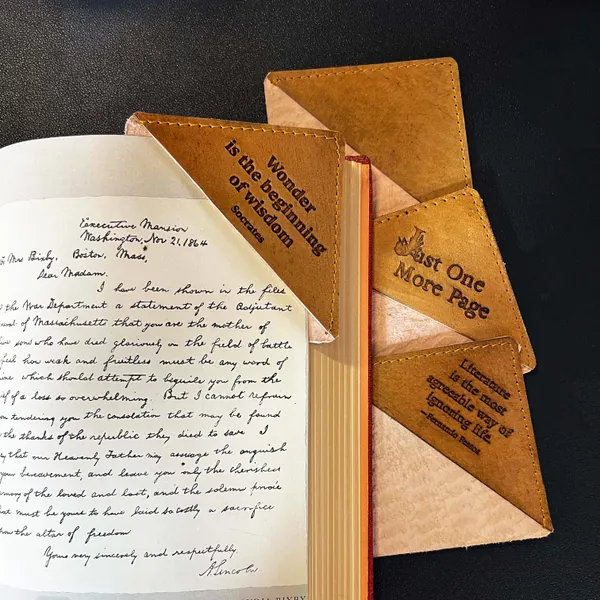 Executive Mansion
Washington, Nov 21, 1864
Mrs Bixby, Boston, Mass,
Dear Madam.
I have been shown in the files
the War Department a statement of the Adjutant
of Massachusetts that you are the mother of
son who have died gloriously on the field of battle
feel how weak and fruitless must be any word of
which should attempt to beguile you from the
of a loss so overwhelming. But I cannot refrain
tendering you the consolation that may be found
the thanks of the republic they died to save I
that our Heavenly Father may assuage the anguish
your bereavement, and leave you only the cherished
of the loved and lost, and the solemn pride
must be yours to have laid so costly a sacrifice
the altar of freedom
Yours very sincerely and respectfully.
A. Lincoln
BIXBY
Wonder
is the beginning
of wisdom
Socrates
Just One
More Page
Literature
is the most
agreeable way of
ignoring life.
—Fernando Pessoa